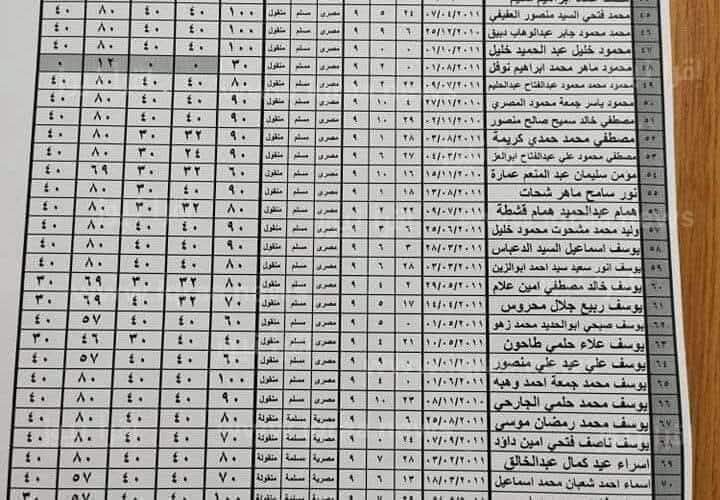 ٤٥ محمد فتحي السيد منصور العفيفي ٠٧/٠٤/٢٠١١ ٢٤ ٥ ٩ مصرى مسلم منقول ١٠٠ ٤٠ ٤٠ ٨٠ ٤٠
٤٦ محمد محمود جابر عبدالوهاب دبيق ٢٥/١٢/٢٠١٠ ٦ ٩ ٩ مصرى مسلم منقول ١٠٠ ٤٠ ٤٠ ٨٠ ٤٠
٤٧ محمود خليل عبد الحميد خليل ٠١/١٠/٢٠١٠ ٠ ٠ ٩ مصرى مسلم منقول ١٠٠ ٤٠ ٤٠ ٨٠ ٤٠
٤٨ محمود ماهر محمد ابراهيم نوفل ٠١/٠٨/٢٠١١ ٠ ٢ ٩ مصرى مسلم منقول ٣٠ ٠ ٠ ١٢ ٠
٤٩ محمود محمد محمود عبدالفتاح عبدالحليم ٠٩/٠٧/٢٠١١ ٢٢ ٢ ٩ مصرى مسلم منقول ٨٠ ٤٠ ٤٠ ٨٠ ٤٠
٥٠ محمود ياسر جمعة محمود المصري ٢٧/١١/٢٠١٠ ٤ ١٠ ٩ مصرى مسلم منقول ٩٠ ٤٠ ٤٠ ٨٠ ٤٠
٥١ مصطفي خالد سميح صالح منصور ٠٢/١١/٢٠١٠ ٢٩ ١٠ ٩ مصرى مسلم منقول ٩٠ ٤٠ ٤٠ ٨٠ ٤٠
٥٢ مصطفي محمد حمدي كريمة ٠٣/٠٨/٢٠١١ ٢٨ ١ ٩ مصرى مسلم منقول ٩٠ ٣٢ ٣٠ ٨٠ ٤٠
٥٣ مصطفي محمود علي عبدالفتاح ابوالعز ٠٤/٠٣/٢٠١١ ٢٧ ٦ ٩ مصرى مسلم منقول ٩٠ ٢٤ ٣٠ ٨٠ ٤٠
٥٤ مؤمن سليمان عبد المنعم عمارة ١٥/١١/٢٠١٠ ١٦ ١٠ ٩ مصرى مسلم منقول ٦٠ ٣٢ ٣٠ ٦٩ ٤٠
٥٥ نور سامح ماهر شحات ١٣/٠٨/٢٠١١ ١٨ ١ ٩ مصرى مسلم منقول ٩٠ ٤٠ ٤٠ ٨٠ ٤٠
٥٦ همام عبدالحميد همام قشطة ٠٩/٠٧/٢٠١١ ٢٢ ٢ ٩ مصرى مسلم منقول ٨٠ ٣٢ ٣٠ ٨٠ ٤٠
٥٧ وليد محمد مشحوت محمود خليل ٢٥/٠٦/٢٠١١ ٦ ٣ ٩ مصرى مسلم منقول ٩٠ ٤٠ ٤٠ ٨٠ ٤٠
٥٨ يوسف اسماعيل السيد الدعباس ٢٨/٠٣/٢٠١١ ٣ ٦ ٩ مصرى مسلم منقول ٩٠ ٤٠ ٤٠ ٨٠ ٤٠
٥٩ يوسف انور سعيد سيد احمد ابوالزين ٠٣/٠٣/٢٠١١ ٢٨ ٦ ٩ مصرى مسلم منقول ٨٠ ٤٠ ٤٠ ٨٠ ٤٠
٦٠ يوسف خالد مصطفي امين علام ٢٩/٠٥/٢٠١١ ٢ ٤ ٩ مصرى مسلم منقول ٨٠ ٣٢ ٣٠ ٦٩ ٣٠
٦١ يوسف ربيع جلال محروس ١٤/٠٤/٢٠١١ ١٧ ٥ ٩ مصرى مسلم منقول ٧٠ ٣٢ ٤٠ ٦٩ ٣٠
٦٢ يوسف صبحي ابوالحديد محمد زهو ٠١/٠٥/٢٠١١ ٠ ٥ ٩ مصرى مسلم منقول ٦٠ ٤٠ ٤٠ ٥٧ ٤٠
٦٣ يوسف علاء حلمي طاحون ١٠/٠٥/٢٠١١ ٢١ ٤ ٩ مصرى مسلم منقول ٤٠ ٤٠ ٣٠ ٤٦ ٣٠
٦٤ يوسف علي عيد علي منصور ٠١/٠١/٢٠١١ ٠ ٩ ٩ مصرى مسلم منقول ٦٠ ٤٠ ٤٠ ٥٧ ٤٠
٦٥ يوسف محمد جمعة احمد وهبة ٠١/٠٦/٢٠١١ ٠ ٤ ٩ مصرى مسلم منقول ١٠٠ ٤٠ ٤٠ ٨٠ ٤٠
٦٦ يوسف محمد حلمي الجارحي ٠٨/١١/٢٠١٠ ٢٣ ١٠ ٩ مصرى مسلم منقول ٩٠ ٤٠ ٤٠ ٨٠ ٤٠
٦٧ يوسف محمد رمضان موسى ٢٥/٠٨/٢٠١١ ٦ ١ ٩ مصرية مسلمة منقولة ٨٠ ٤٠ ٤٠ ٨٠ ٤٠
يوسف ناصف فتحي امين داود ٠٧/٠٩/٢٠١١ ٢٤ ٩ مصرية مسلمة منقولة ٧٠ ٤٠ ٤٠ ٨٠ ٤٠
٦٩ اسراء عيد كمال عبدالخالق ٠٣/٠٢/٢٠١١ ٢٨ ٧ ٩ مصرية مسلمة منقولة ٨٠ ٤٠ ٤٠ ٨٠ ٤٠
٧٠ اسماء احمد شعبان محمد اسماعيل ١٨/٠٢/٢٠١١ ١٣ ٧ ٩ مصرية مسلمة منقولة ٧٠ ٤٠ ٤٠ ٥٧ ٤٠